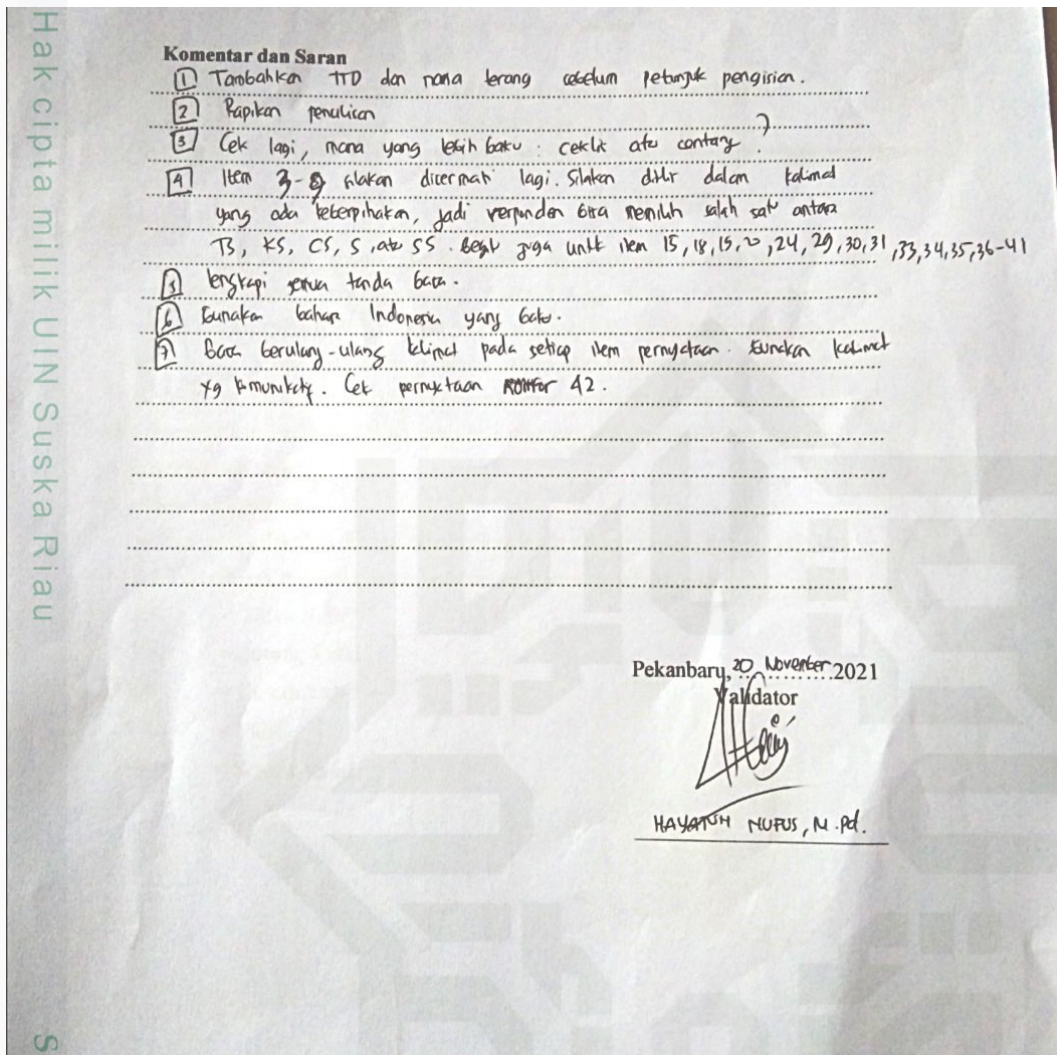 Hak cipta milik UIN Suska Riau
S
Komentar dan Saran
1 Tambahkan TTD dan nama terang sebelum petunjuk pengisian.
2 Rapikan penulisan
3 Cek lagi, mana yang lebih baku : ceklis atau contang ?
4 Item 3-8 silakan dicermati lagi. Silakan ditulir dalam kalimat
yang ada keberpihakan, jadi responden bisa memilih salah satu antara
TS, KS, CS, S, atau SS. Begitu juga untuk item 15, 18, 19, 20, 24, 29, 30, 31, 33, 34, 35, 36-41
5 lengkapi semua tanda baca.
6 Gunakan bahasa Indonesia yang baku.
7 Baca berulang-ulang kalimat pada setiap item pernyataan. Gunakan kalimat
yg komunikatif. Cek pernyataan nomor 42.
Pekanbaru, 20 November 2021
Validator
HAYATUN NUFUS, M.Pd.